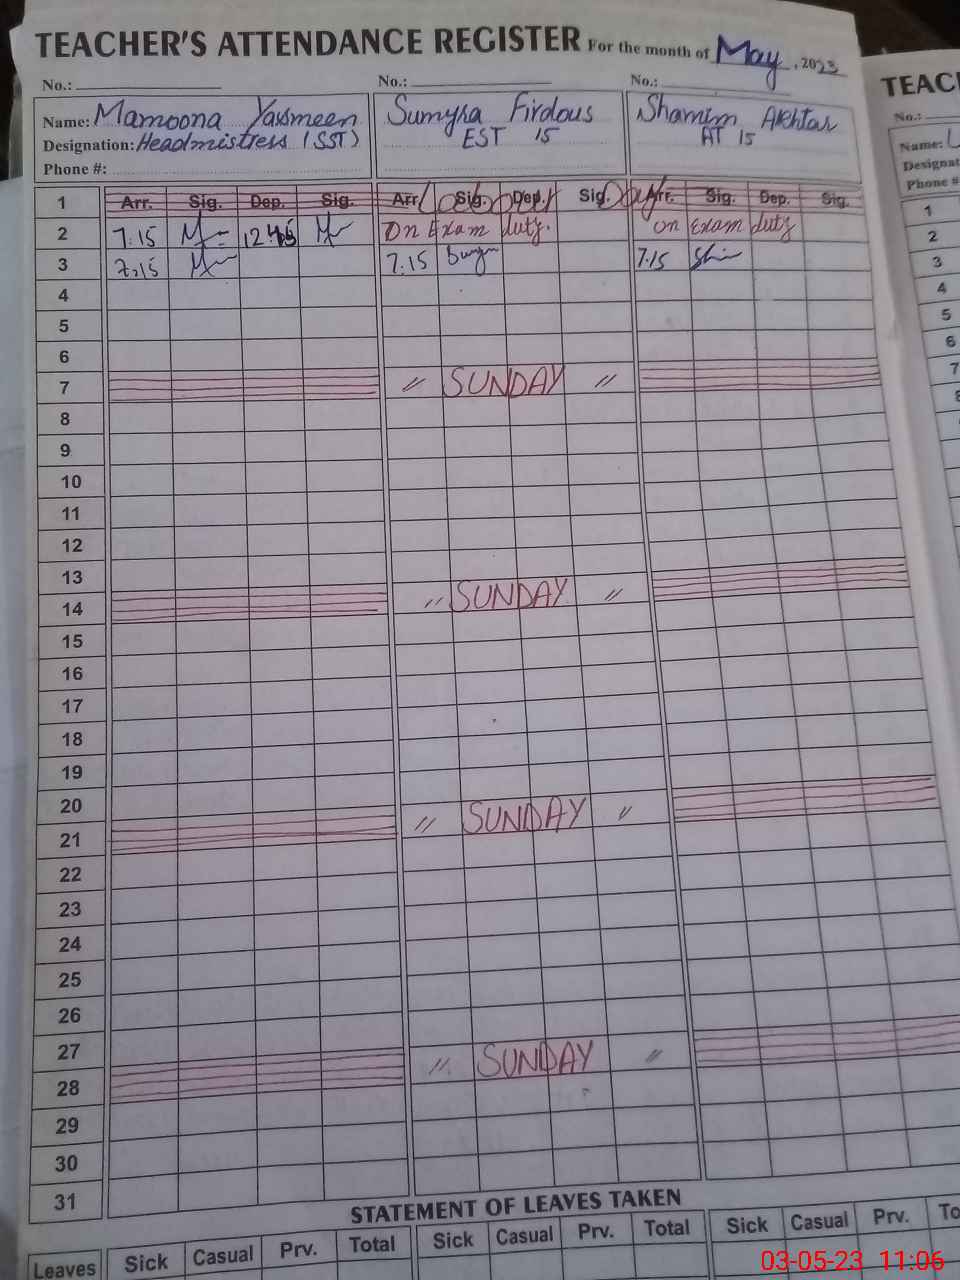 TEACHER'S ATTENDANCE REGISTER For the month of May, 2023
No.: No.: No.:
Name: Mamoona Yassmeen Sumyra Firdous Shamim Akhtar
Designation: Headmistress (SST) EST 15 AT 15
Phone #:
1 Arr. Sig. Dep. Sig. Arr. Sig. Dep. Sig. Arr. Sig. Dep. Sig.
Labour Day
2 7.15 12.45 On Exam duty. on Exam duty
3 7.15 7.15 7.15
4
5
6
7 〃 SUNDAY 〃
8
9
10
11
12
13
14 〃 SUNDAY 〃
15
16
17
18
19
20
21 〃 SUNDAY 〃
22
23
24
25
26
27
28 〃 SUNDAY 〃
29
30
31
STATEMENT OF LEAVES TAKEN
Leaves Sick Casual Prv. Total Sick Casual Prv. Total Sick Casual Prv. To
TEAC
No.:
Name:
Designat
Phone #
1
2
3
4
5
6
7
8
03-05-23 11:06